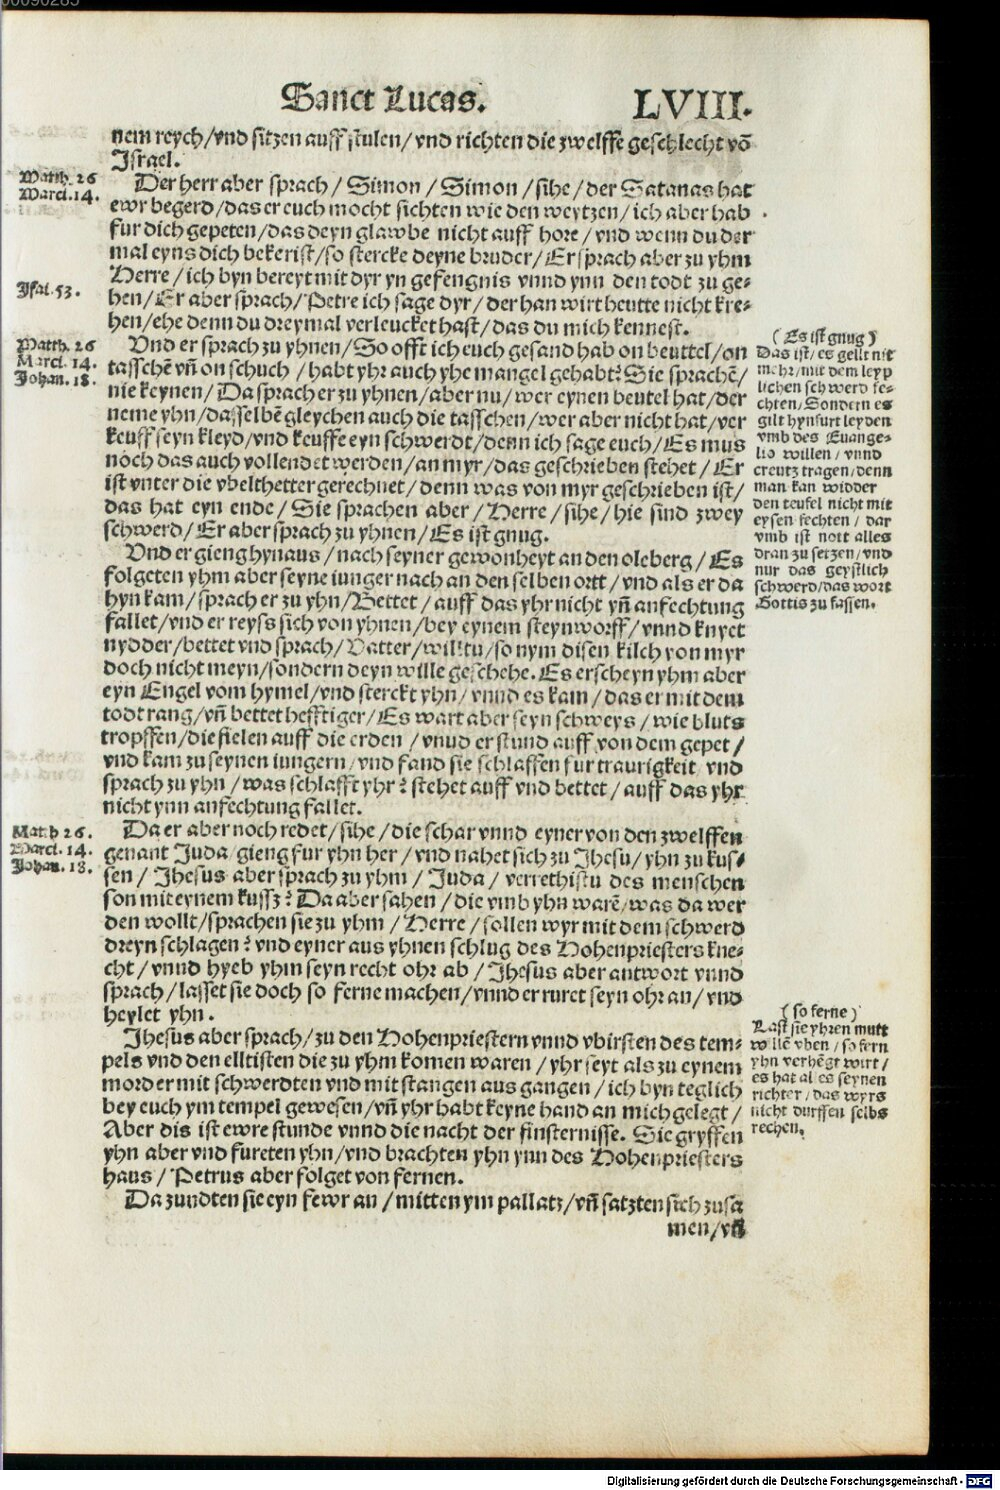 Sanct Lucas. LVIII.
nem reych/vnd sitzen auff stulen/vnd richten die zwelffe geschlecht võ
Israel.
Matth. 26
Marci. 14.
Der herr aber sprach / Simon / Simon / sihe / der Satanas hat
ewr begerd/das er euch mocht sichten wie den weytzen/ich aber hab
fur dich gepeten/das deyn glawbe nicht auff hore / vnd wenn du der
mal eyns dich bekerist/so stercke deyne bruder/Er sprach aber zu yhm
Herre / ich byn bereyt mit dyr yn gefengnis vnnd ynn den todt zu ge-
Jsai. 53.
hen/Er aber sprach/Petre ich sage dyr/der han wirt heutte nicht kre-
hen/ehe denn du dreymal verleucket hast/das du mich kennest.
Matth. 26
Marci. 14.
Johan. 18.
Vnd er sprach zu yhnen/So offt ich euch gesand hab on beuttel/on
tasschẽ vñ on schuch / habt yhr auch yhe mangel gehabt? Sie sprachẽ/
nie keynen/Da sprach er zu yhnen/aber nu/wer eynen beutel hat/der
neme yhn/dasselbẽ gleychen auch die tasschen/wer aber nicht hat/ver
keuff seyn kleyd/vnd keuffe eyn schwerdt/denn ich sage euch/Es mus
noch das auch vollendet werden/an myr/das geschrieben stehet / Er
ist vnter die vbelthetter gerechnet/denn was von myr geschrieben ist/
das hat eyn ende/Sie sprachen aber/Herre/sihe/hie sind zwey
schwerd/Er aber sprach zu yhnen/Es ist gnug.
(Es ist gnug)
Das ist/es gellt nit
mehr/mit dem leyp
lichen schwerd fe-
chten/Sondern es
gilt hynfurt leyden
vmb des Euange-
lio willen/vnnd
creutz tragen/denn
man kan widder
den teufel nicht mit
eysen fechten / dar
vmb ist nott alles
dran zu setzen/vnd
nur das geystlich
schwerd/das wort
Gottis zu fassen.
Vnd er gieng hynaus / nach seyner gewonheyt an den oleberg / Es
folgeten yhm aber seyne iunger nach an den selben ortt/vnd als er da
hyn kam/sprach er zu yhn/Bettet / auff das yhr nicht ynñ anfechtung
fallet/vnd er reyss sich von yhnen/bey eynem steynworff/vnnd knyet
nydder/bettet vnd sprach/Vatter/willtu/so nym disen kilch von myr
doch nicht meyn/sondern deyn wille geschehe. Es erscheyn yhm aber
eyn Engel vom hymel/vnd sterckt yhn/vnnd es kam/das er mit dem
todt rang/vñ bettet hefftiger/Es wart aber seyn schweys/wie bluts
tropffen/die fielen auff die erden / vnud er stund auff von dem gepet /
vnd kam zu seynen iungern/vnd fand sie schlaffen fur traurigkeit/vnd
sprach zu yhn / was schlafft yhr? stehet auff vnd bettet/auff das yhr
nicht ynn anfechtung fallet.
Matth 26.
Marci. 14.
Johan. 18.
Da er aber noch redet/sihe/die schar vnnd eyner von den zwelffen
genant Juda/gieng fur yhn her / vnd nahet sich zu Jhesu/yhn zu kus-
sen / Jhesus aber sprach zu yhm / Juda / verrethistu des menschen
son mit eynem kussz? Da aber sahen / die vmb yhn warẽ/was da wer
den wollt/sprachen sie zu yhm / Herre/sollen wyr mit dem schwerd
dreyn schlagen? vnd eyner aus yhnen schlug des Hohenpriesters kne-
cht/vnnd hyeb yhm seyn recht ohr ab / Jhesus aber antwort vnnd
sprach/lasset sie doch so ferne machen/vnnd er ruret seyn ohr an/vnd
heylet yhn.
Jhesus aber sprach/zu den Hohenpriestern vnnd vbirsten des tem-
pels vnd den elltisten die zu yhm komen waren / yhr seyt als zu eynem
morder mit schwerdten vnd mit stangen aus gangen / ich byn teglich
bey euch ym tempel gewesen/vñ yhr habt keyne hand an mich gelegt /
Aber dis ist ewre stunde vnnd die nacht der finsternisse. Sie gryffen
yhn aber vnd fureten yhn/vnd brachten yhn ynn des Hohenpriesters
haus / Petrus aber folget von fernen.
(so ferne)
Last sie yhren mutt
wollẽ vben/so fern
yhn verhẽgt wirt/
es hat alles seynen
richter/das wyrs
nicht durffen selbs
rechen.
Da zundten sie eyn fewr an/mitten ym pallatz/vñ satzten sich zusa
men/vñ
Digitalisierung gefördert durch die Deutsche Forschungsgemeinschaft - DFG